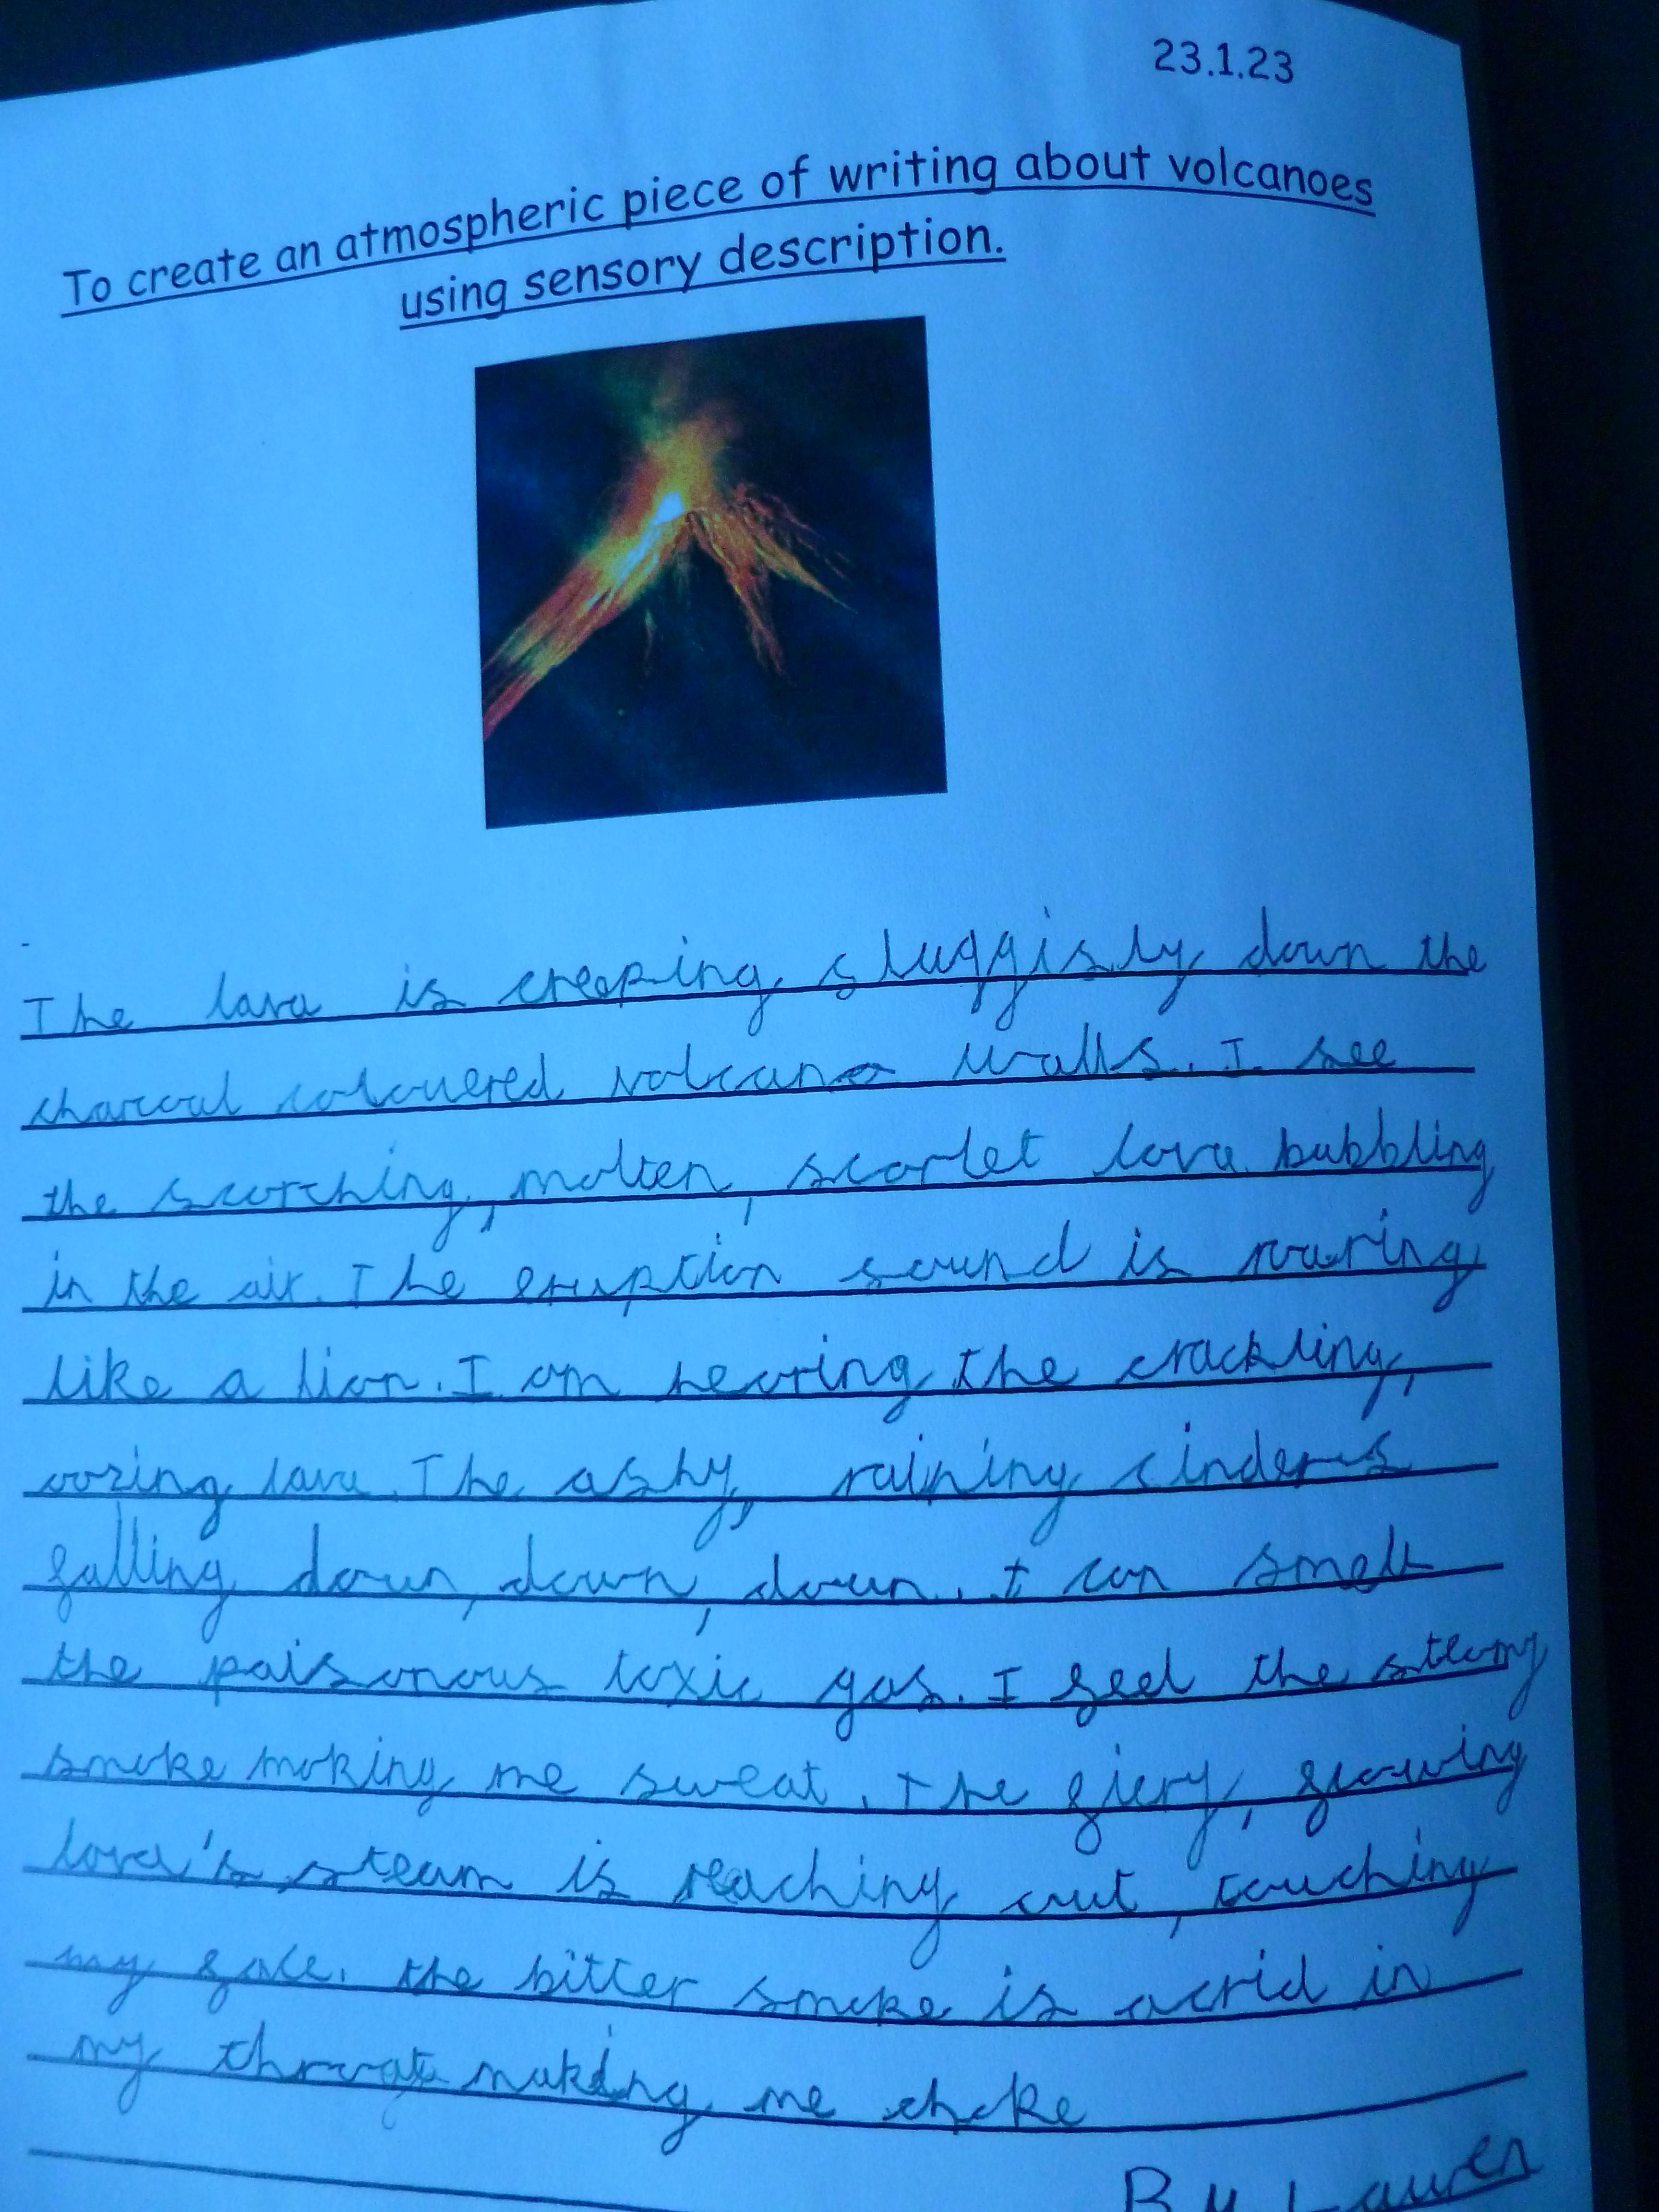 23.1.23
To create an atmospheric piece of writing about volcanoes
using sensory description.
The lava is creeping sluggisly down the
charcoal coloured volcano walls. I see
the scorching, molten, scarlet lava bubbling
in the air. The eruption sound is roaring
like a lion. I am hearing the crackling,
oozing lava. The ashy, raining cinders
falling down, down, down. I can smell
the poisonous toxic gas. I feel the steamy
smoke making me sweat. The fiery, glowing
lava's steam is reaching out, touching
my face. the bitter smoke is acrid in
my throat making me choke
By Lauren